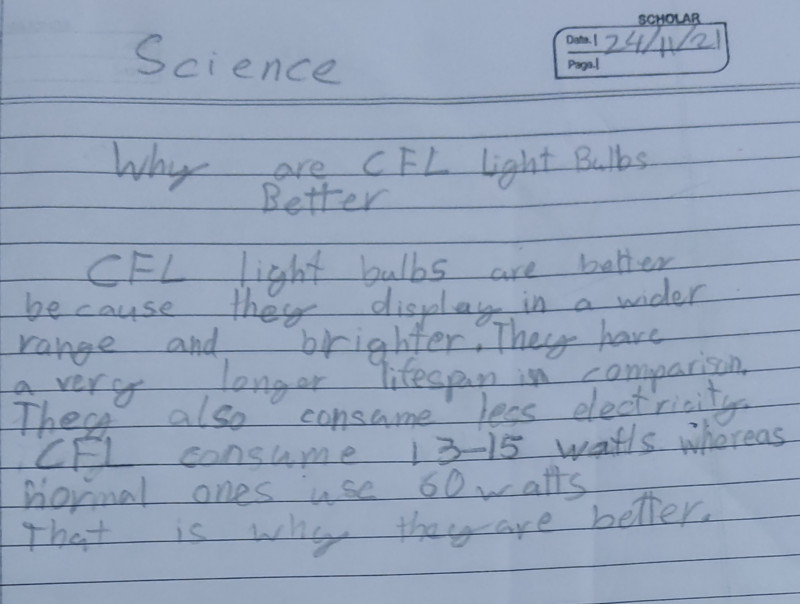 SCHOLAR
Date 24/11/21
Page
Science
Why are CFL Light Bulbs
Better
CFL light bulbs are better
because they display in a wider
range and brighter. They have
a very longer lifespan in comparison.
They also consame less electricity.
CFL consume 13-15 watts whereas
normal ones use 60 watts
That is why they are better.